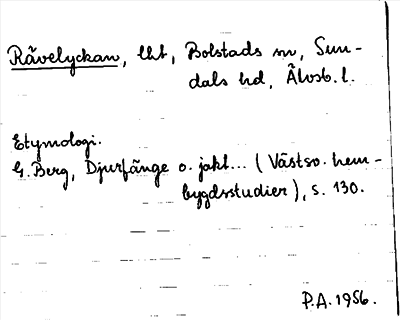 Rävelyckan, lht, Bolstads sn, Sun-
dals hd, Älvsb. l.
Etymologi.
G. Berg, Djurfänge o. jakt... (Västsv. hem-
bygdsstudier), s. 130.
P.A. 1956.